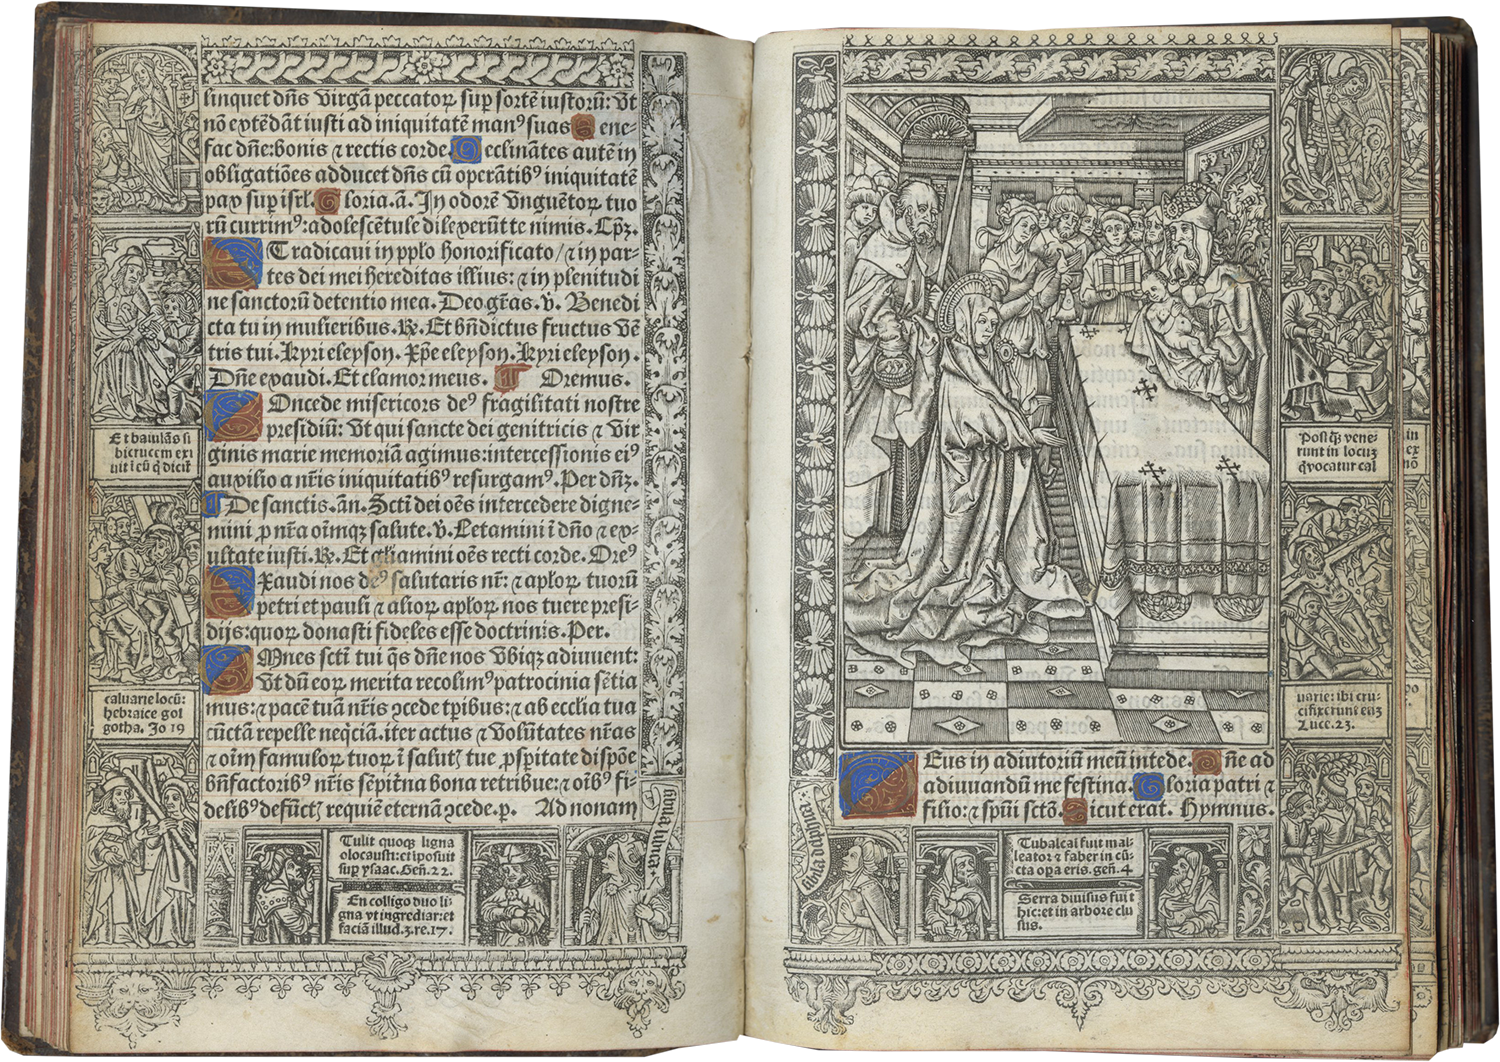 linquet dn̄s virgā peccatoꝝ sup sortē iustorū: vt
nō extēdāt iusti ad iniquitatē manꝰ suas. Bene-
fac dn̄e: bonis ⁊ rectis corde. Declinātes autē in
obligatiōes adducet dn̄s cū operātibꝰ iniquitatē
pax sup isrl. Gloria. ā. In odorē vnguētoꝝ tuo
rū currimꝰ: adolescētule dilexerūt te nimis. Cpꝫ.
ET radicaui in pplo honorificato/ ⁊ in par-
tes dei mei hereditas illius: ⁊ in plenitudi
ne sanctorū detentio mea. Deo gr̄as. v̄. Benedi
cta tu in mulieribus. ℟. Et bn̄dictus fructus vē
tris tui. Kyri eleyson. Xp̄e eleyson. Kyri eleyson.
Dn̄e exaudi. Et clamor meus. Oremus.
COncede misericors deꝰ fragilitati nostre
presidiū: vt qui sancte dei genitricis ⁊ vir
ginis marie memoriā agimus: intercessionis eiꝰ
auxilio a nr̄is iniquitatibꝰ resurgamꝰ. Per dn̄ꝫ.
De sanctis. an̄. Scti dei oēs intercedere digne-
mini ꝓ nr̄a oīmqꝫ salute. v̄. Letamini ī dn̄o ⁊ ex-
ultate iusti. ℟. Et gl̄iamini oēs recti corde. Oreꝰ
EXaudi nos deꝰ salutaris nr̄: ⁊ apl̄oꝝ tuorū
petri et pauli ⁊ alioꝝ apl̄oꝝ nos tuere presi-
dijs: quoꝝ donasti fideles esse doctrinis. Per.
OMnes sctī tui q̄s dn̄e nos vbiqꝫ adiuuent:
vt dū eoꝝ merita recolimꝰ patrocinia sētia
mus: ⁊ pacē tuā nr̄is ꝯcede tp̄ibus: ⁊ ab ecclia tua
cūctā repelle neq̄ciā. iter actus ⁊ volūtates nr̄as
⁊ oīm famuloꝝ tuoꝝ ī salutꝫ tue ꝓspitate dispōe
bn̄factoribꝰ nr̄is sēpit̄na bona retribue: ⁊ oībꝰ fi-
delibꝰ defūctꝫ requiē eternā ꝯcede. p. Ad nonam
Et baiulās si
bi crucem exi
uit ī eū q̄ dicit̄
caluarie locū:
hebraice gol
gotha. Jo 19
Tulit quoqꝫ ligna
olocausti: et īposuit
sup ysaac. Gen̄. 22.
En colligo duo li-
gna vt ingrediar: et
faciā illud. 3. re. 17.
DEus in adiutoriū meū intēde. Dn̄e ad
adiuuandū me festina. Gloria patri ⁊
filio: ⁊ sp̄ui sctō. Sicut erat. Hymnus.
Postq̄ꝫ vene-
runt in locuꝫ
q̄ vocatur cal
uarie: ibi cru-
cifixerunt euꝫ
Luce. 23.
Tubalcaī fuit mal-
leator ⁊ faber in cū-
cta oꝑa eris. gen̄. 4
Serra diuisus fuit
hic: et in arbore clu
sus.